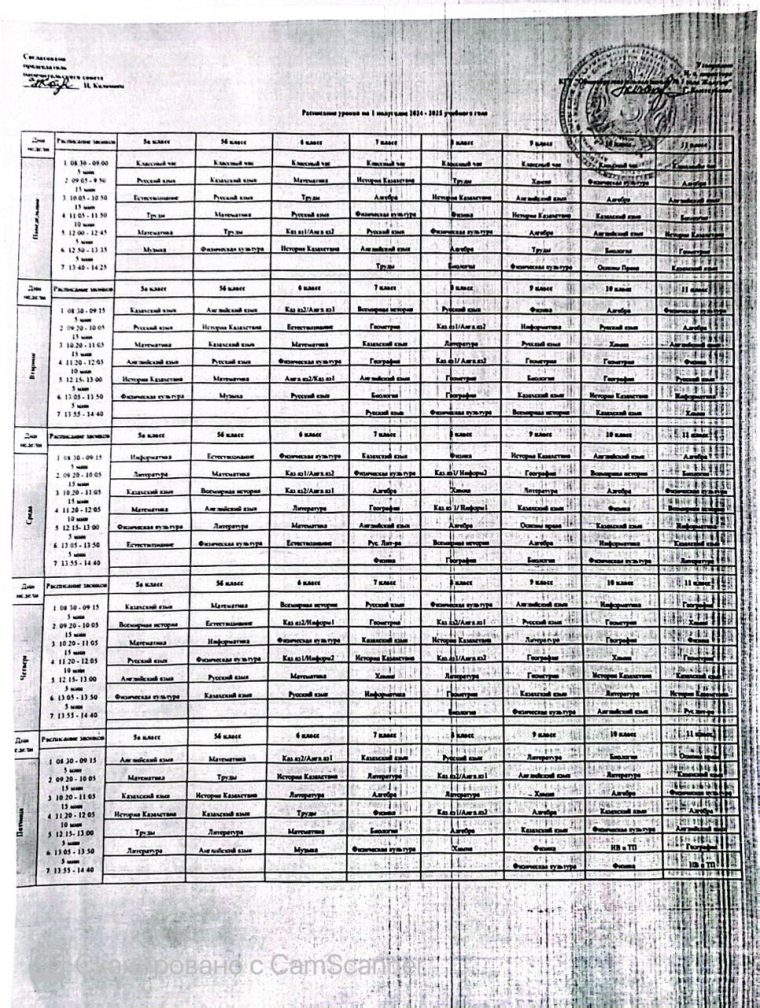 Согласовано
председатель
попечительского совета
Утверждаю
Расписание уроков на 1 полугодие 2024 - 2025 учебного года
Дни недели Расписание звонков 5а класс 5б класс 6 класс 7 класс 8 класс 9 класс 10 класс 11 класс
Понедельник
1 08.30 - 09.00 Классный час Классный час Классный час Классный час Классный час Классный час Классный час Классный час
5 мин
2 09.05 - 9.50 Русский язык Казахский язык Математика История Казахстана Труды Химия Физическая культура Алгебра
15 мин
3 10.05 - 10.50 Естествознание Русский язык Труды Алгебра История Казахстана Английский язык Алгебра Английский язык
15 мин
4 11.05 - 11.50 Труды Математика Русский язык Физическая культура Физика История Казахстана Казахский язык Биология
10 мин
5 12.00 - 12.45 Математика Труды Каз яз1/Англ яз2 Русский язык Физическая культура Алгебра Английский язык История Казахстана
5 мин
6 12.50 - 13.35 Музыка Физическая культура История Казахстана Английский язык Алгебра Труды Биология Геометрия
5 мин
7 13.40 - 14.25 Труды Биология Физическая культура Основы Права Казахский язык
Дни недели Расписание звонков 5а класс 5б класс 6 класс 7 класс 8 класс 9 класс 10 класс 11 класс
Вторник
1 08.30 - 09.15 Казахский язык Английский язык Каз яз2/Англ яз1 Всемирная история Русский язык Физика Алгебра Физическая культура
5 мин
2 09.20 - 10.05 Русский язык История Казахстана Естествознание Геометрия Каз яз1/Англ яз2 Информатика Русский язык Алгебра
15 мин
3 10.20 - 11.05 Математика Казахский язык Математика Казахский язык Литература Русский язык Химия Английский язык
15 мин
4 11.20 - 12.05 Английский язык Русский язык Физическая культура География Каз яз1/ Англ яз2 Геометрия Геометрия Физика
10 мин
5 12.15- 13.00 История Казахстана Математика Англ яз2/Каз яз1 Английский язык Геометрия Биология География Русский язык
5 мин
6 13.05 - 13.50 Физическая культура Музыка Русский язык Биология География Казахский язык История Казахстана Информатика
5 мин
7 13.55 - 14.40 Русский язык Физическая культура Всемирная история Казахский язык Химия
Дни недели Расписание звонков 5а класс 5б класс 6 класс 7 класс 8 класс 9 класс 10 класс 11 класс
Среда
1 08.30 - 09.15 Информатика Естествознание Физическая культура Казахский язык Физика История Казахстана Английский язык Алгебра
5 мин
2 09.20 - 10.05 Литература Математика Каз яз1/Англ яз2 Физическая культура Каз яз1/ Информ2 География Всемирная история Биология
15 мин
3 10.20 - 11.05 Казахский язык Всемирная история Каз яз2/Англ яз1 Алгебра Химия Литература Алгебра Физическая культура
15 мин
4 11.20 - 12.05 Математика Английский язык Литература География Каз яз 1/ Информ1 Казахский язык Физика Всемирная история
10 мин
5 12.15- 13.00 Физическая культура Литература Математика Английский язык Алгебра Основы права Казахский язык Информатика
5 мин
6 13.05 - 13.50 Естествознание Физическая культура Естествознание Рус. Лит-ра Всемирная история Алгебра Информатика Казахский язык
5 мин
7 13.55 - 14.40 Физика География Биология Физическая культура Литература
Дни недели Расписание звонков 5а класс 5б класс 6 класс 7 класс 8 класс 9 класс 10 класс 11 класс
Четверг
1 08.30 - 09.15 Казахский язык Математика Всемирная история Русский язык Физическая культура Английский язык Информатика География
5 мин
2 09.20 - 10.05 Всемирная история Естествознание Каз яз2/Информ1 Геометрия Каз яз2/Англ яз1 Русский язык Геометрия Химия
15 мин
3 10.20 - 11.05 Математика Информатика Физическая культура Казахский язык История Казахстана Литература География Физика
15 мин
4 11.20 - 12.05 Русский язык Физическая культура Каз яз1/Информ2 История Казахстана Каз яз1/Англ яз2 География Химия Геометрия
10 мин
5 12.15- 13.00 Английский язык Русский язык Математика Химия Литература Геометрия История Казахстана Казахский язык
5 мин
6 13.05 - 13.50 Физическая культура Казахский язык Русский язык Информатика Геометрия Казахский язык Литература История Казахстана
5 мин
7 13.55 - 14.40 Биология Физическая культура Английский язык Рус лит-ра
Дни недели Расписание звонков 5а класс 5б класс 6 класс 7 класс 8 класс 9 класс 10 класс 11 класс
Пятница
1 08.30 - 09.15 Английский язык Математика Каз яз2/Англ яз1 Казахский язык Русский язык Литература Биология Основы права
5 мин
2 09.20 - 10.05 Математика Труды История Казахстана Литература Каз яз2/Англ яз1 Английский язык Литература Казахский язык
15 мин
3 10.20 - 11.05 Казахский язык История Казахстана Литература Алгебра Литература Химия Алгебра Физическая культура
15 мин
4 11.20 - 12.05 История Казахстана Казахский язык Труды Физика Каз яз1/Англ яз2 Алгебра Казахский язык Алгебра
10 мин
5 12.15- 13.00 Труды Литература Математика Биология Алгебра Казахский язык Физическая культура Английский язык
5 мин
6 13.05 - 13.50 Литература Английский язык Музыка Физическая культура Химия Физика НВ и ТП География
5 мин
7 13.55 - 14.40 Физическая культура Физика НВ и ТП
Сканировано с CamScanner